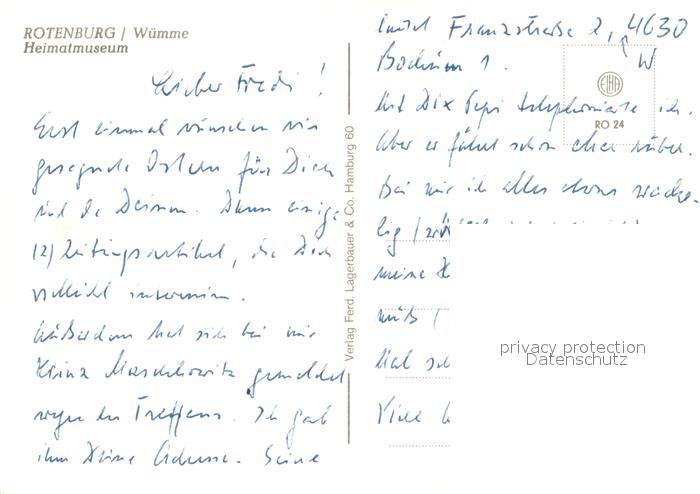 ROTENBURG / Wümme
Heimatmuseum
Lieber Fredi!
Erst einmal wünschen wir
gesegnete Ostern für Dich
und die Deinen. Dann einige
(2) Zeitungsartikel, die Dich
vielleicht interessieren.
Außerdem hat sich bei mir
Heinz gemeldet
wegen des Treffens. Ich gab
ihm Deine Adresse. Seine
Verlag Ferd. Lagerbauer & Co. Hamburg 60
lautet Franzstrasse 2, 4630
W
Bochum 1.
Mit Dix telephonierte ich.
Aber er fährt schon eher rüber.
Bei mir ist alles etwas wacke-
lig
meine
muß
Mal
Viele
EHA
RO 24
privacy protection
Datenschutz